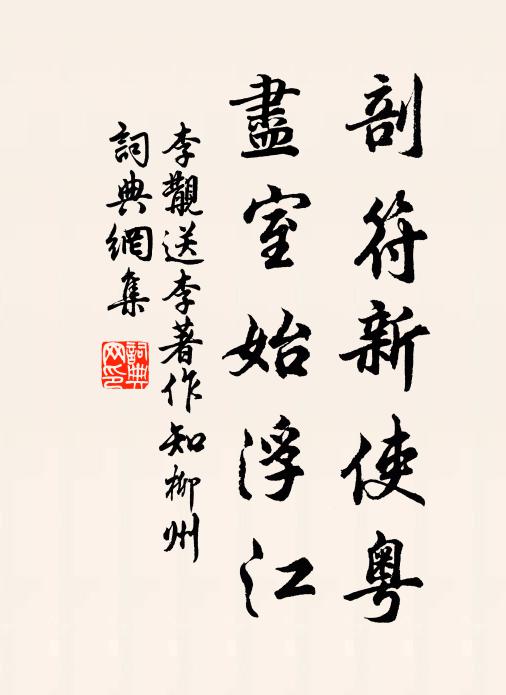 剖符新使粵
盡室始浮江
李覯送李著作知柳州
詞典網集
詞典
网印